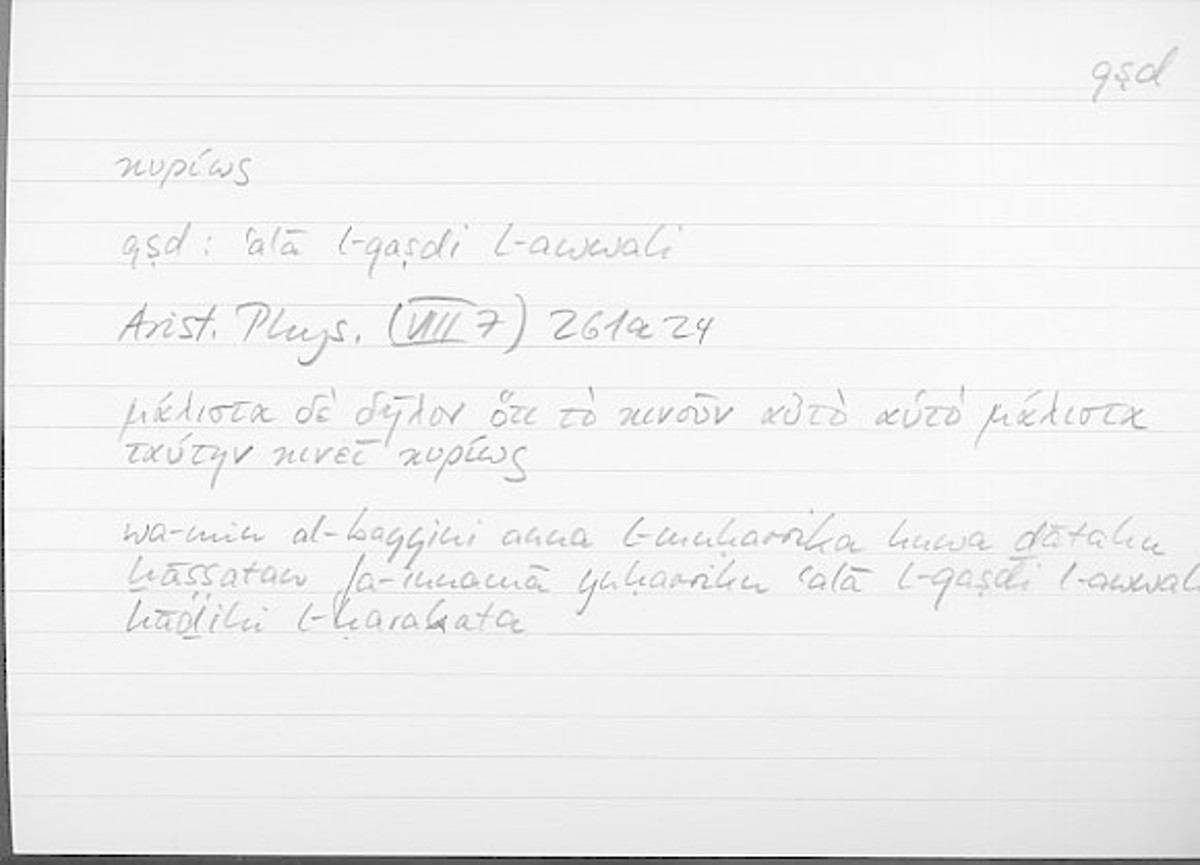 qṣd
κυρίως
qṣd : ʿalā l-qaṣdi l-awwali
Arist. Phys. (VIII 7) 261a24
μάλιστα δὲ δῆλον ὅτι τὸ κινοῦν αὐτὸ αὑτὸ μάλιστα
ταύτην κινεῖ κυρίως
wa-min al-bayyini anna l-muḥarrika huwa ḏātahu
ḫāṣṣatan fa-innamā yuḥarriku ʿalā l-qaṣdi l-awwal
hāḏihi l-ḥarakata